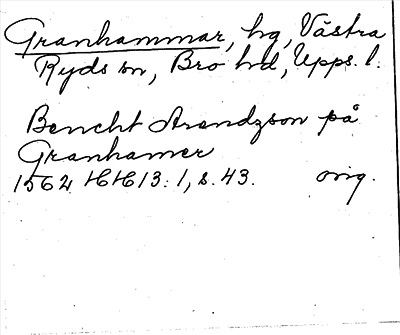 Granhammar, hg, Västra
Ryds sn, Bro hd, Upps. l.
Bencht Arendzson på
Granhamer
1562 HH 13: 1, s. 43. orig.